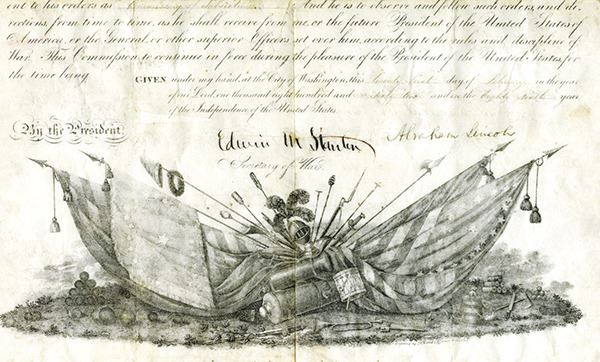 ent to his orders as And he is to observe and follow such orders, and di-
rections, from time to time, as he shall receive from me, or the future President of the United States of
America, or the General, or other superior Officers set over him, according to the rules and discipline of
War. This Commission to continue in force during the pleasure of the President of the United States for
the time being.
GIVEN under my hand, at the City of Washington, this twenty day of in the year
of our Lord, one thousand eight hundred and sixty two and in the eighty sixth year
of the Independence of the United States
By the President,
Abraham Lincoln
Edwin M Stanton
Secretary of War.